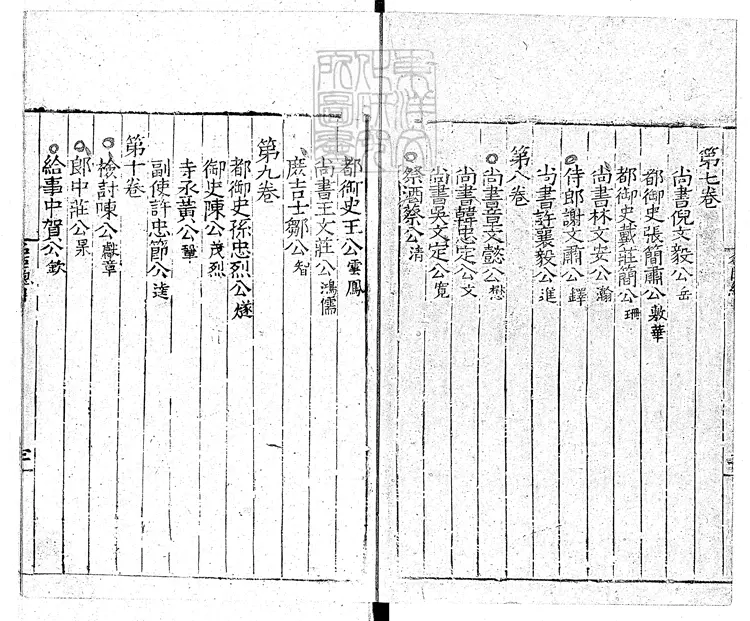 第七卷
尚書倪文毅公岳
都御史張簡肅公敷華
都御史戴莊簡公珊
尚書林文安公瀚
侍郎謝文肅公鐸
尚書許襄毅公進
第八卷
尚書章文懿公懋
尚書韓忠定公文
尚書吳文定公寬
祭酒蔡公清
都御史王公雲鳳
尚書王文莊公鴻儒
庶吉士鄒公智
第九卷
都御史孫忠烈公燧
御史陳公茂烈
寺丞黃公鞏
副使許忠節公逵
第十卷
檢討陳公獻章
郎中莊公杲
給事中賀公欽